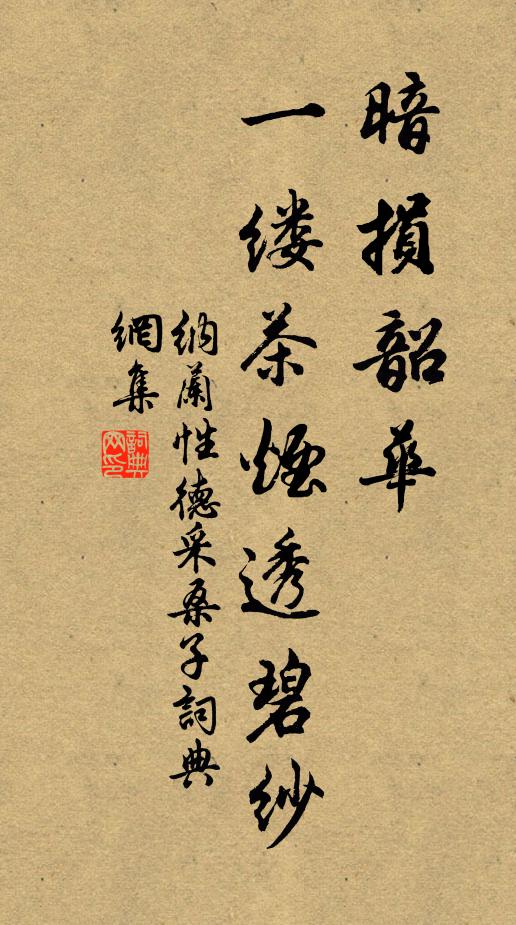 暗損韶華
一缕茶煙透碧紗
納蘭性德采桑子詞典
網集
詞典網印